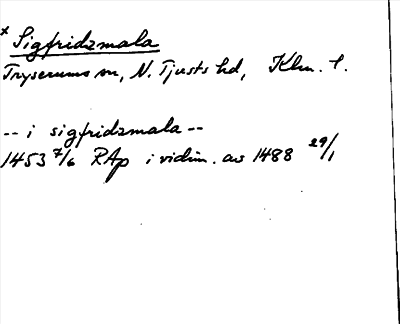 * Sigfridzmala
Tryserums sn, N. Tjusts hd, Klm. l.
-- i sigfridzmala --
1453 7/6 RAp i vidim. av 1488 29/1